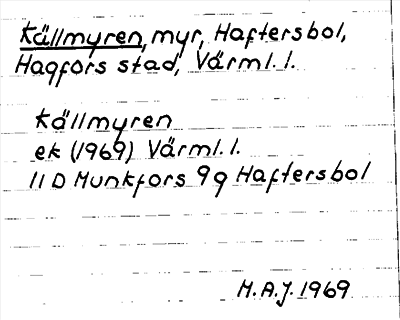 Källmyren, myr, Haftersbol,
Hagfors stad, Värml. l.
Källmyren
ek (1969) Värml. l.
11 D Munkfors 9 g Haftersbol
M.A.J. 1969